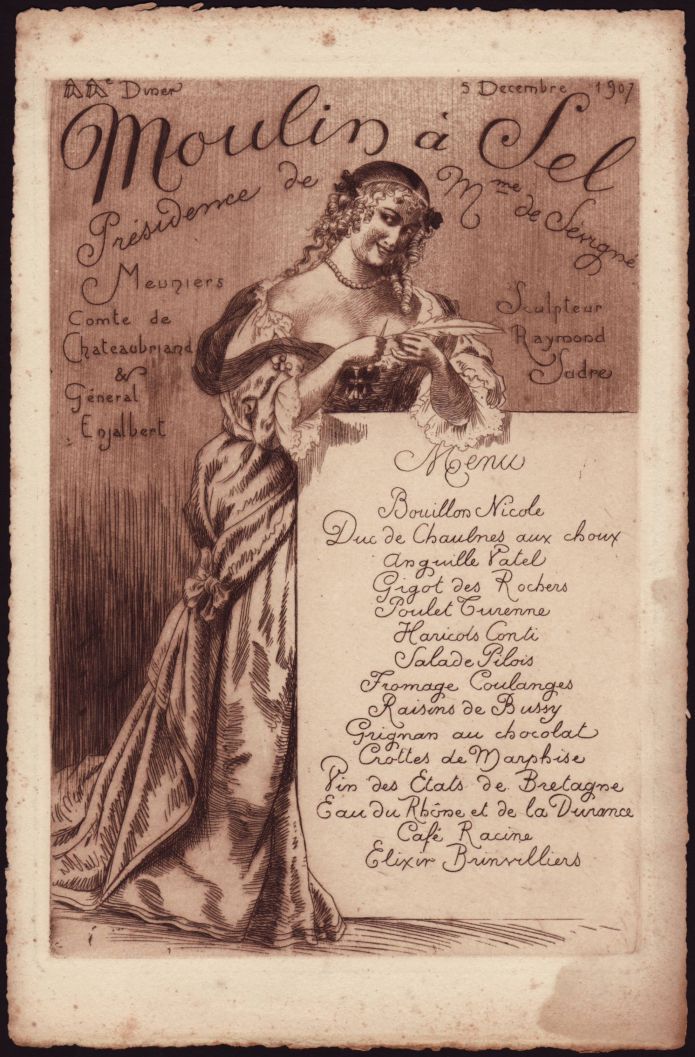 Diner
5 Decembre 1907
Moulin à Sel
Présidence de Mme de Sévigné
Meuniers
Comte de
Chateaubriand
&
Géneral
Enjalbert
Sculpteur
Raymond
Sudre
Menu
Bouillon Nicole
Duc de Chaulnes aux choux
Anguille Vatel
Gigot des Rochers
Poulet Turenne
Haricots Conti
Salade Pilois
Fromage Coulanges
Raisins de Bussy
Grignan au chocolat
Crottes de Marphise
Vin des Etats de Bretagne
Eau du Rhône et de la Durance
Café Racine
Elixir Brinvilliers